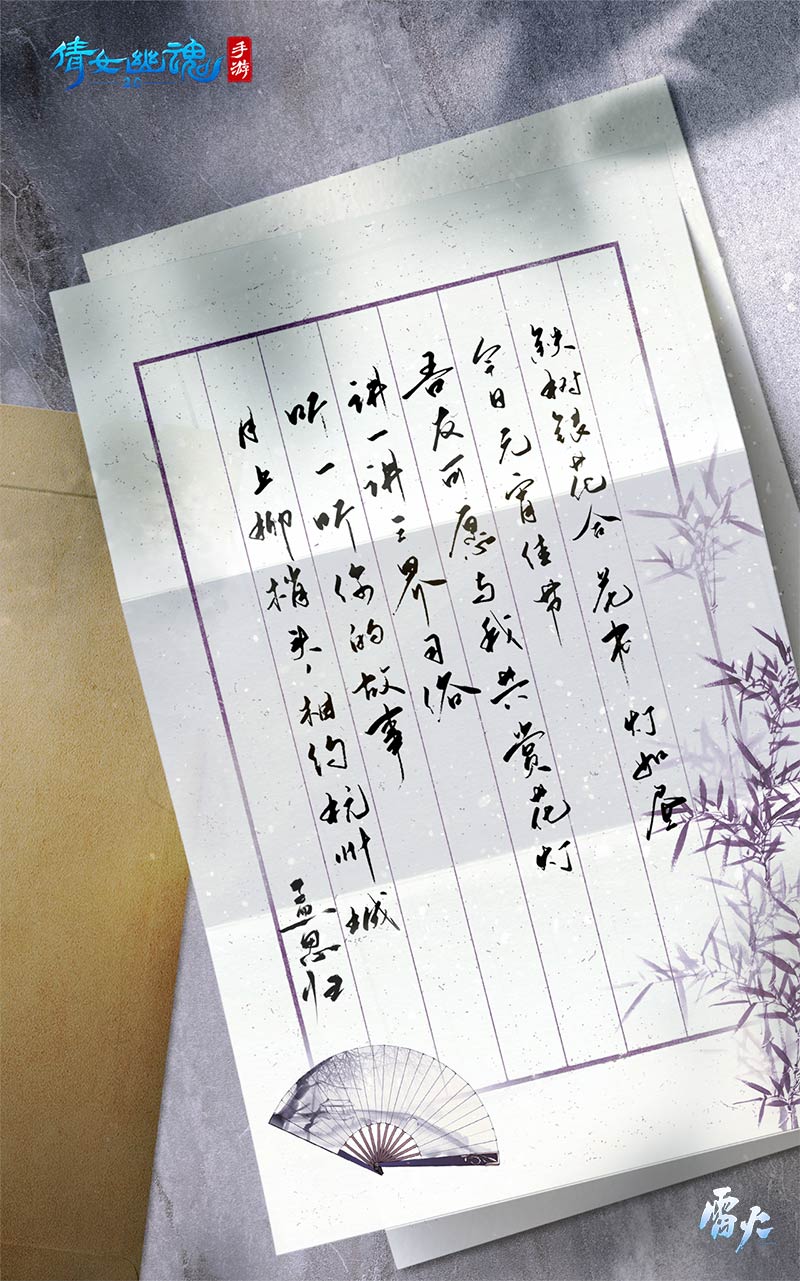 倩女幽魂
手游
铁树银花合 花市 灯如昼
今日元宵佳节
吾友可愿与我共赏花灯
讲一讲三界习俗
听一听你的故事
月上柳梢头，相约杭州城
孟思归
雷火